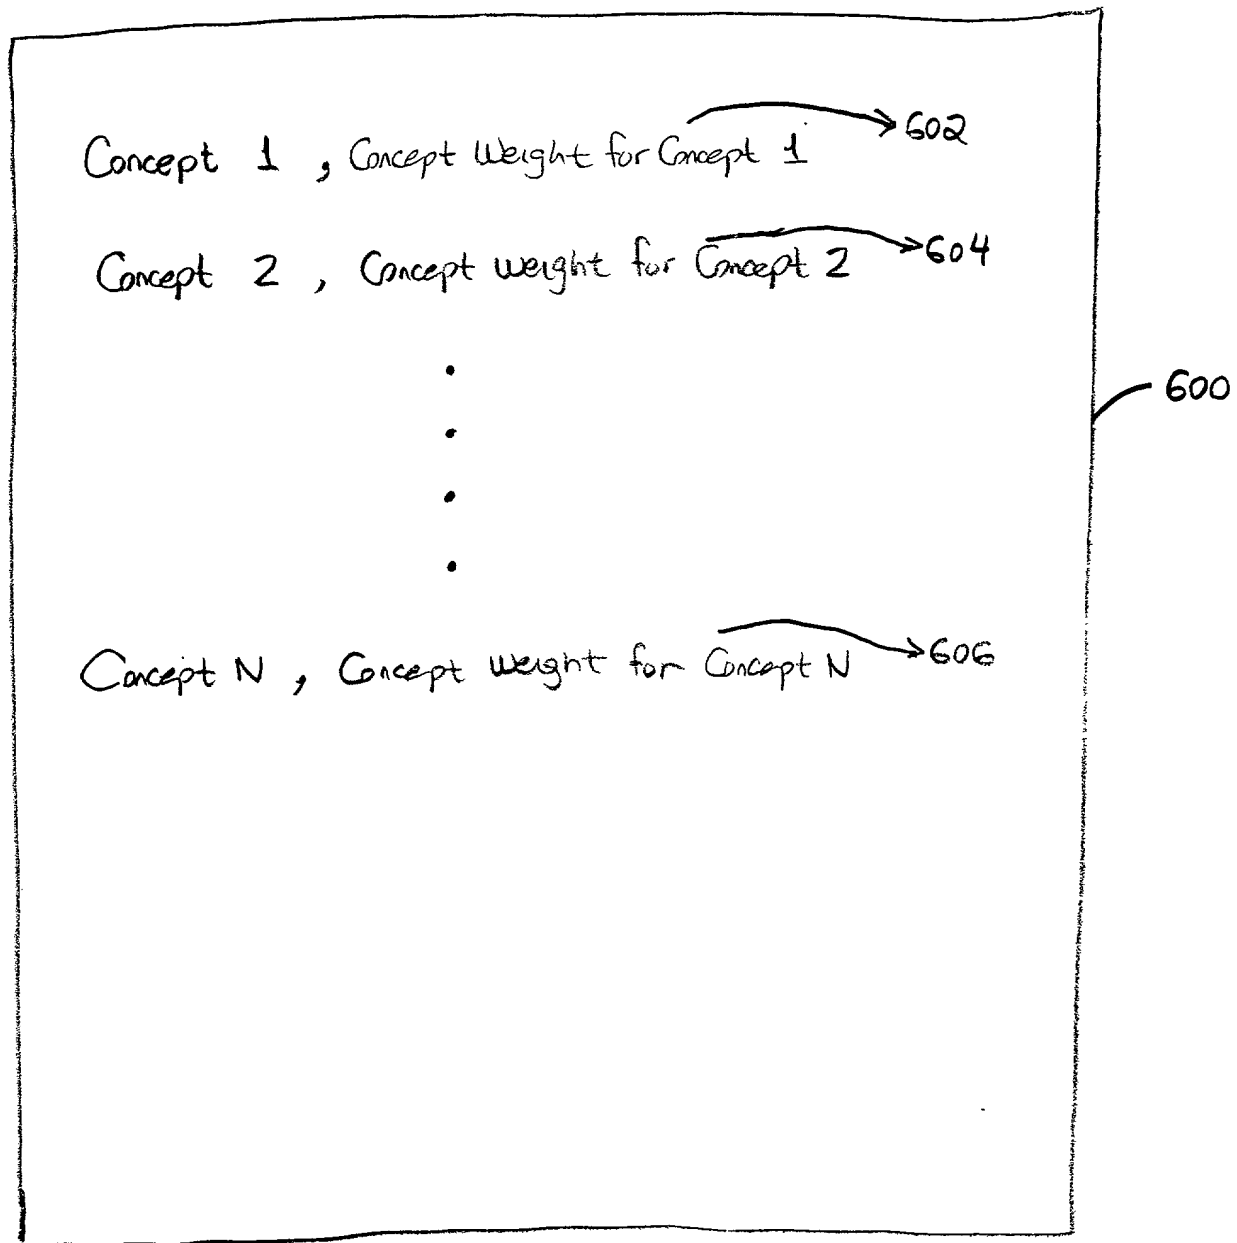 Concept 1 , Concept Weight for Concept 1 602
Concept 2 , Concept weight for Concept 2 604
600
Concept N , Concept weight for Concept N 606